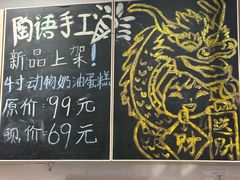 陶语手工
新品上架!
4寸动物奶油蛋糕
原价:99元
现价:69元
财